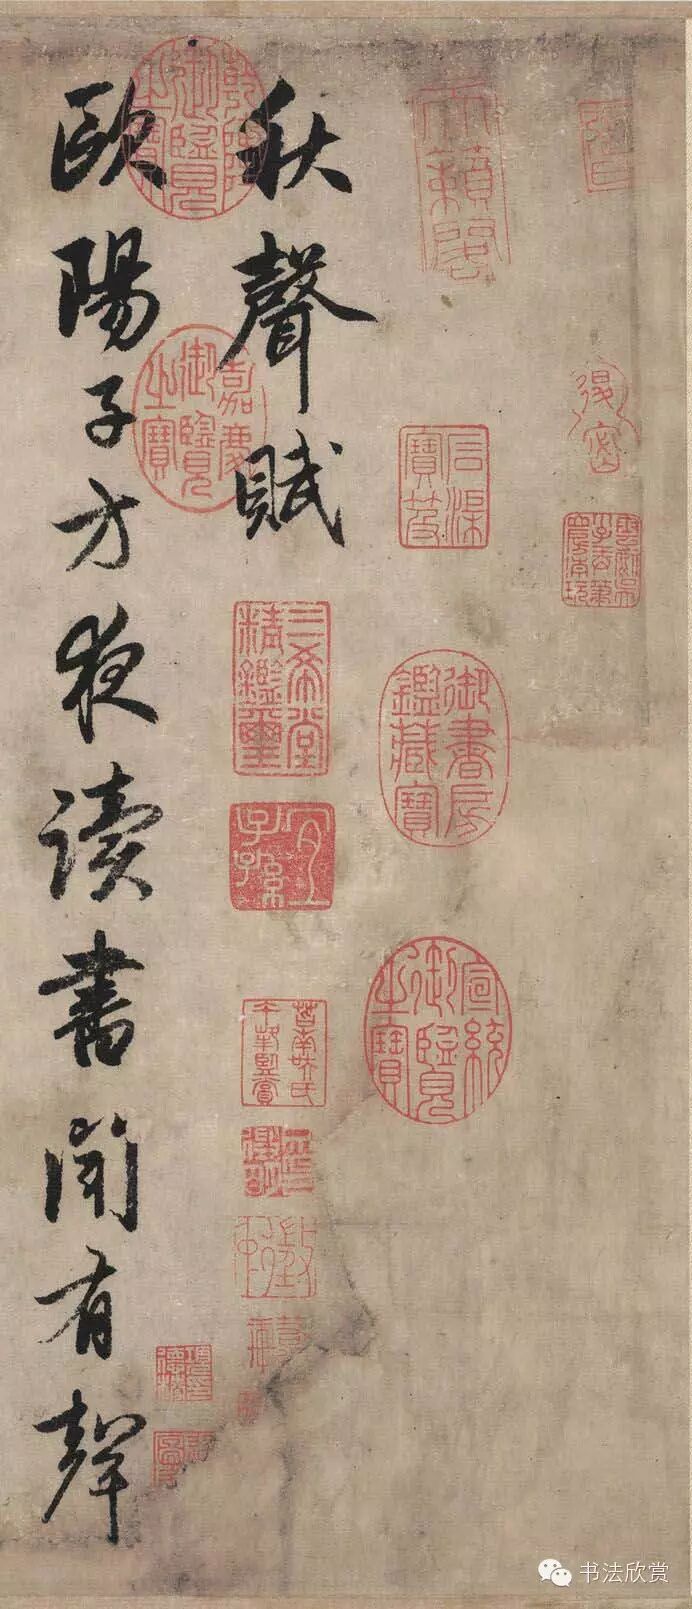 天籟閣
石渠寶笈
御書房
鑑藏寶
宣統
御覽
之寶
秋聲賦
三希堂
精鑑璽
宜子孫
乾隆
御覽
之寶
嘉慶
御覽
之寶
歐陽子方夜讀書聞有聲
书法欣赏